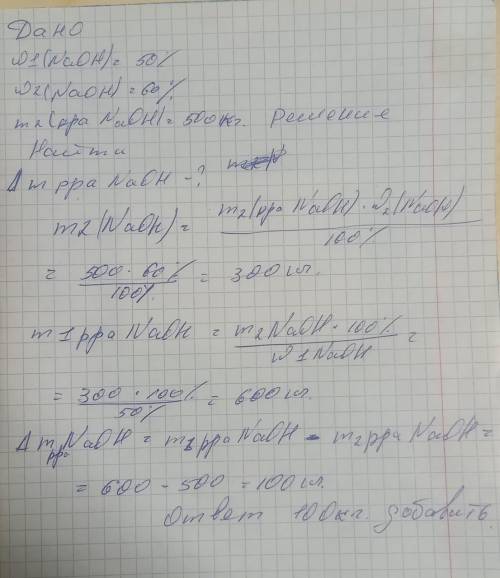 Дано
ω1(NaOH)= 50%
ω2(NaOH)=60%
m2(рра NaOH)=500кг. Решение
Найти
Δ m рра NaOH -?
m2(NaOH)= m2(рра NaOH)·ω2(NaOH) / 100%
= 500·60% / 100% = 300 кг.
m1 рра NaOH = m2NaOH·100% / ω1NaOH =
= 300·100% / 50% = 600 кг.
Δ m рра NaOH = m1 рра NaOH - m2 рра NaOH =
= 600 - 500 = 100 кг.
Ответ 100кг. добавить